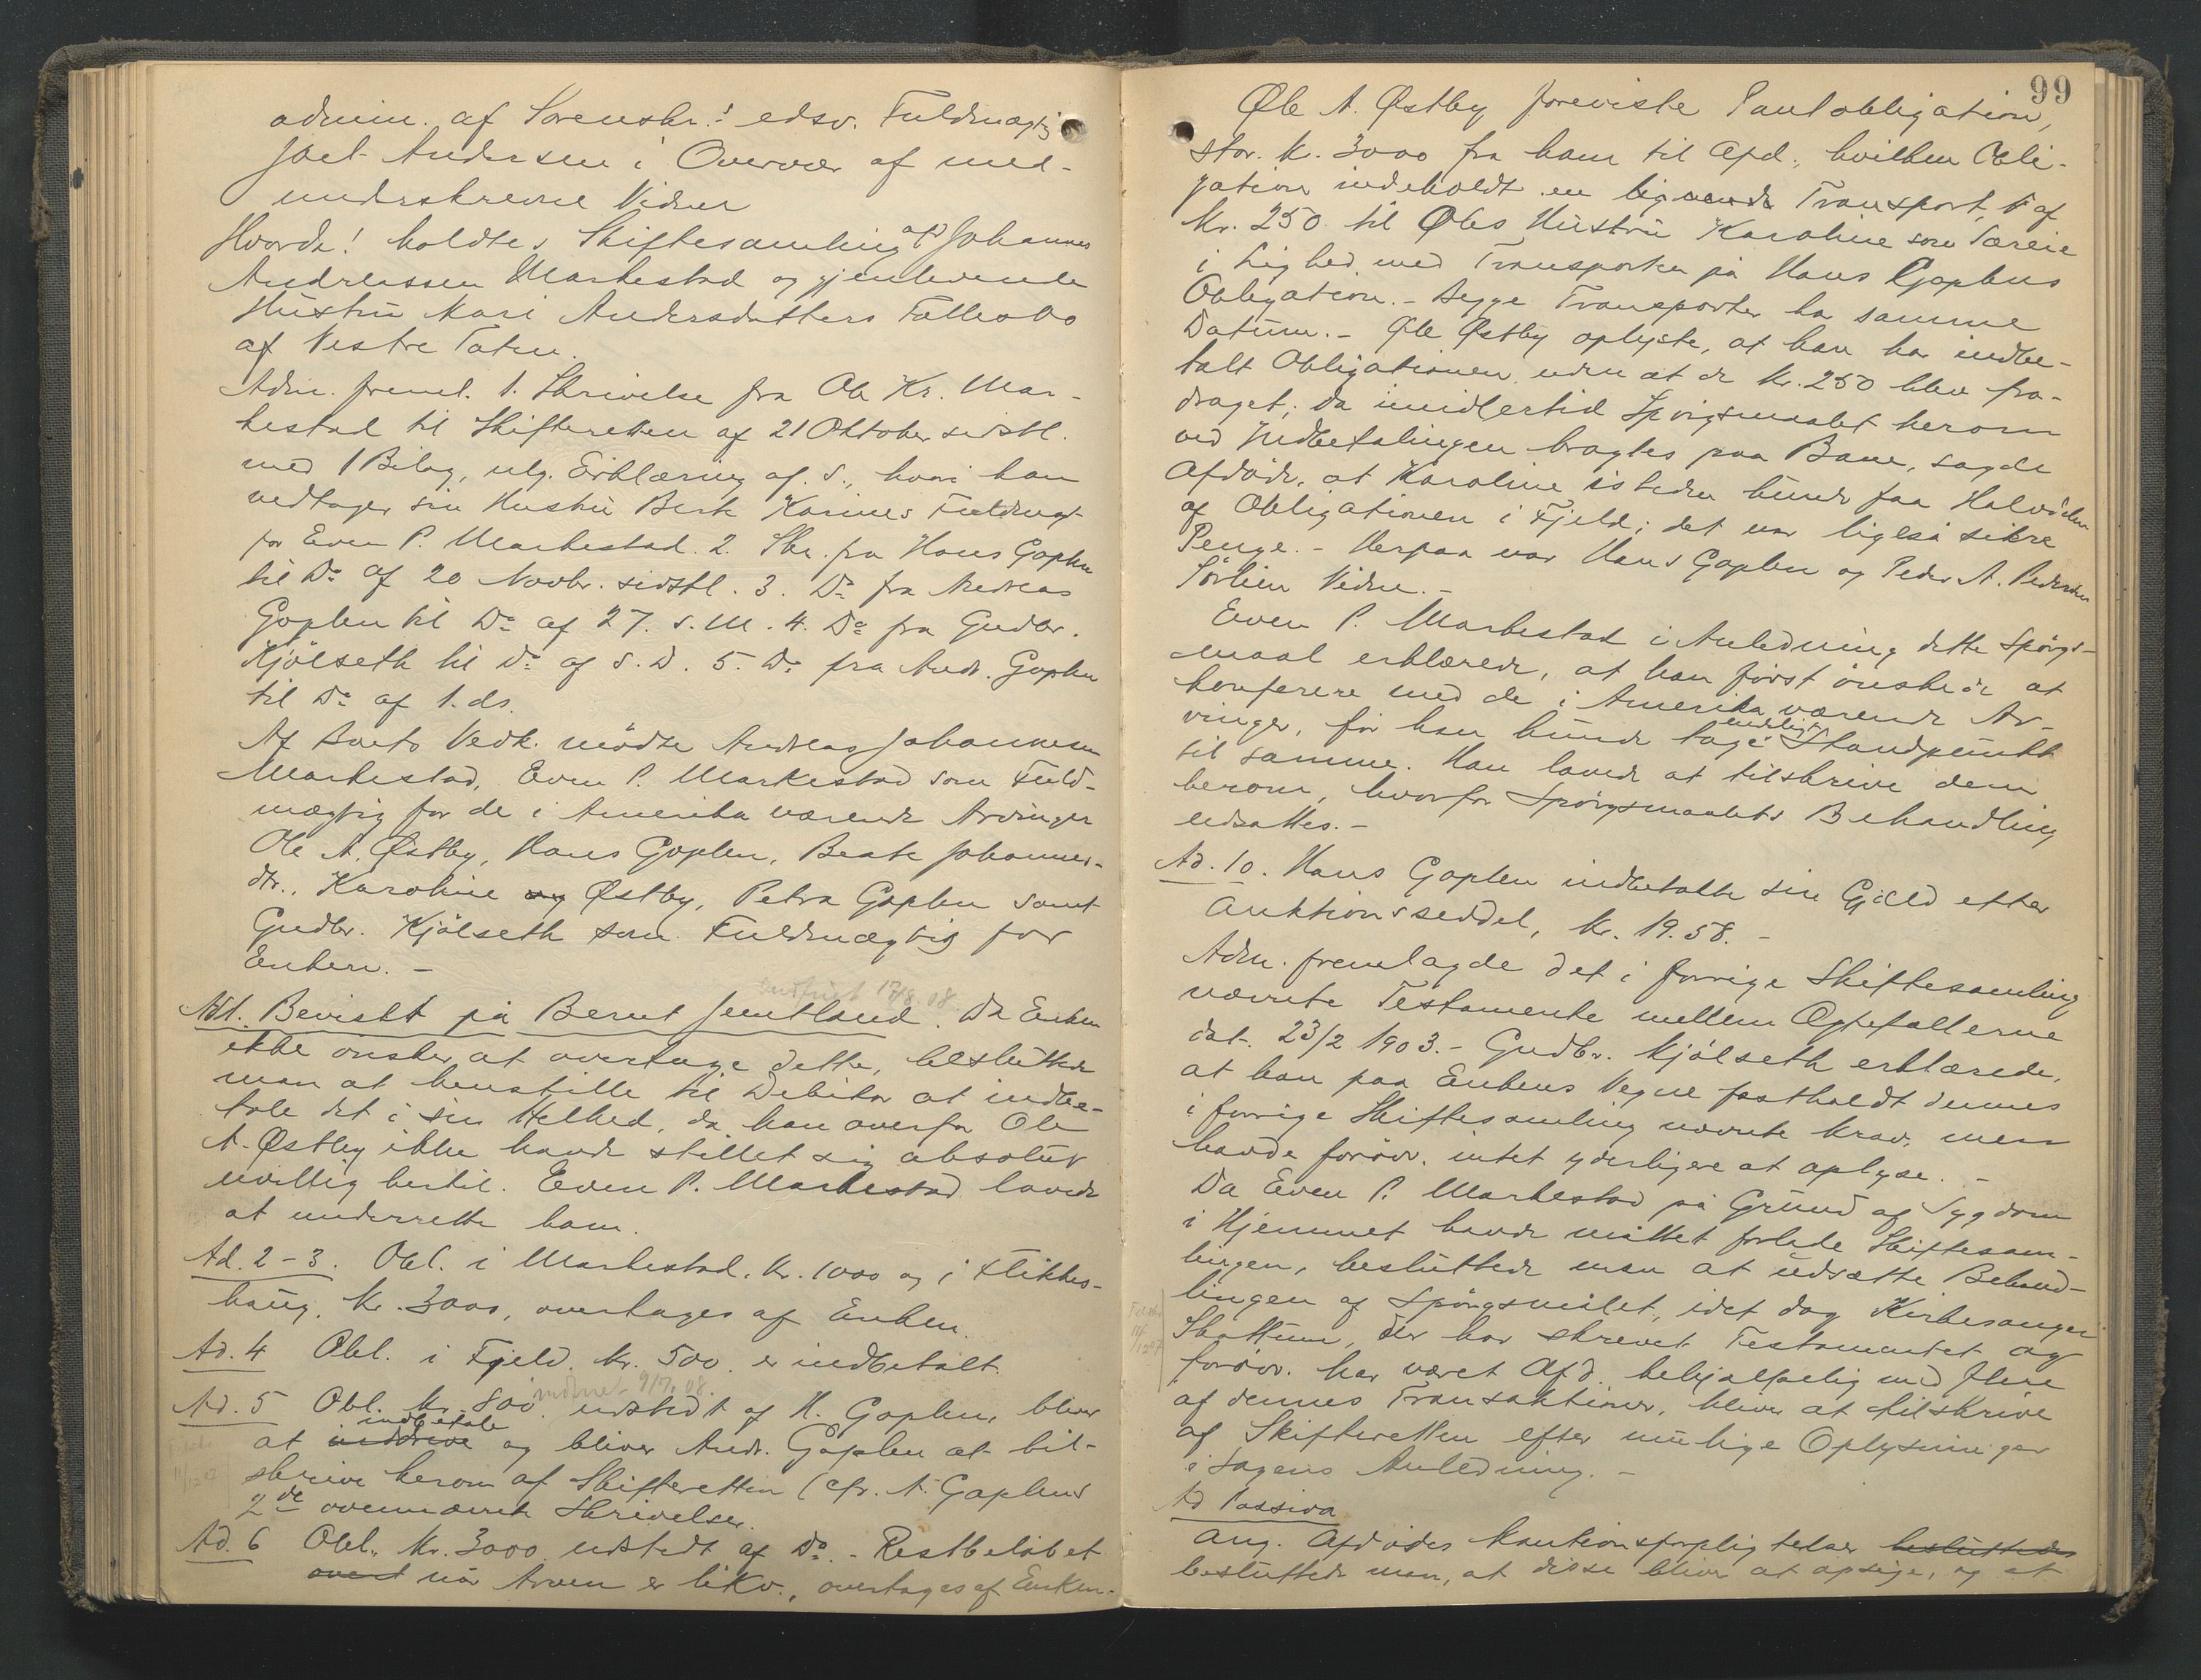 admin. af Sorenskr.s edsv. Fuldmægtig
Joel Andersen i Overvær af med-
underskrevne Vidner
Hvorda! holdtes Skiftesamling i Johannes
Andreassen Markestad og gjenlevende
Hustru Kari Andersdatters Fællesbo
af Vestre Toten.
Adm. freml. 1. Skrivelse fra Ole Kr. Mar-
kestad til Skifteretten af 21 Oktober sidstl.
med 1 Bilag, ulg. Erklæring af s., hvori han
vedtager sin Hustru Berte Karines Fuldmagt
for Even P. Markestad. 2. Skr. fra Hans Goplen
til Do af 20 Novbr. sidstl. 3. Do fra Andreas
Goplen til Do af 27. s.M. 4. Do fra Gudbr.
Kjölseth til Do af s.D. 5. Do fra Andr. Goplen
til Do af 1. ds.
Af Boets Vedk. mödte Andreas Johannesen
Markestad, Even P. Markestad som Fuld-
mægtig for de i Amerika værende Arvinger
Ole A. Østby, Hans Goplen, Beate Johannes-
dtr., Karoline og Østby, Petra Goplen samt
Gudbr. Kjölseth som Fuldmægtig for
Enken. -
Indfriet 17/8.08
Ad 1. Bevislt på Bernt Jemtland. Da Enken
ikke ønsker at overtage dette, besluttede
man at henstille til Debitor at indbe-
tale det i sin Helhed, da han overfor Ole
A. Østby ikke havde stillet sig absolut
uvillig hertil. Even P. Markestad lovede
at underrette ham.
Ad. 2-3. Obl. i Markestad, Kr. 1000 og i Flikkes-
haug, Kr. 3000, overtages af Enken.
Ad. 4 Obl. i Fjeld, Kr. 500 er indbetalt.
indmet 9/7.08.
Ad. 5 Obl. Kr. 800 udstedt af H. Goplen, bliver
indbetale
at inddrive og bliver Andr. Goplen at til-
11/12 07
skrive herom af Skifteretten (cfr. A. Goplens
2de ovennævnte Skrivelser.
Ad. 6 Obl. Kr. 3000 udstedt af Do. - Restbelöbet
overt når Arven er likv., overtages af Enken.
99
Ole A. Østby foreviste Pantobligation,
stor Kr. 3000 fra ham til Afd., hvilken Obli-
gation indeholdt en lignende Transport af
Kr. 250 til Oles Hustru Karoline som Særeie
i Lighed med Transporten på Hans Goplens
Obligation. - Begge Transporter har samme
Datum. - Ole Østby oplyste, at han har indbe-
talt Obligationen uden at de Kr. 250 blev fra-
draget; da imidlertid Spörgsmaalet herom
ved Indbetalingen bragtes paa Bane, sagde
Afdöde, at Karoline isteden kunde faa Halvdelen
af Obligationen i Fjeld; det var ligeså sikre
Penge. - Herpaa var Hans Goplen og Peder A. Pedersen
Sörlien Vidne. -
Even P. Markestad i Anledning dette Spörgs-
maal erklærede, at han först önskede at
konferere med de i Amerika værende Ar-
endeligt
vinger, för han kunde tage Standpunkt
til samme. Han lovede at tilskrive dem
herom, hvorfor Spörgsmaalets Behandling
udsattes. -
Ad. 10. Hans Goplen indbetalte sin Gjæld efter
Auktionsseddel, Kr. 19.58. -
Adm. fremlagde det i forrige Skiftesamling
nævnte Testamente mellem Ægtefællerne
dat. 23/2 1903. - Gudbr. Kjölseth erklærede,
at han paa Enkens Vegne fastholdt dennes
i forrige Skiftesamling nævnte Krav, men
havde foröv. intet yderligere at oplyse. -
Da Even P. Markestad på Grund af Sygdom
i Hjemmet havde måttet forlade Skiftesam-
lingen, besluttede man at udsætte Behand-
lingen af Spörgsmålet, idet dog Kirkesanger
Skattum, der har skrevet Testamentet og
foröv. har været Afd. behjælpelig med flere
af dennes Transaktioner, bliver at tilskrive
af Skifteretten efter mulige Oplysninger
i Sagens Anledning. -
Ad Passiva
Ang. Afdödes Kautionsforpligtelser besluttedes
besluttede man, at disse bliver at opsige, og at